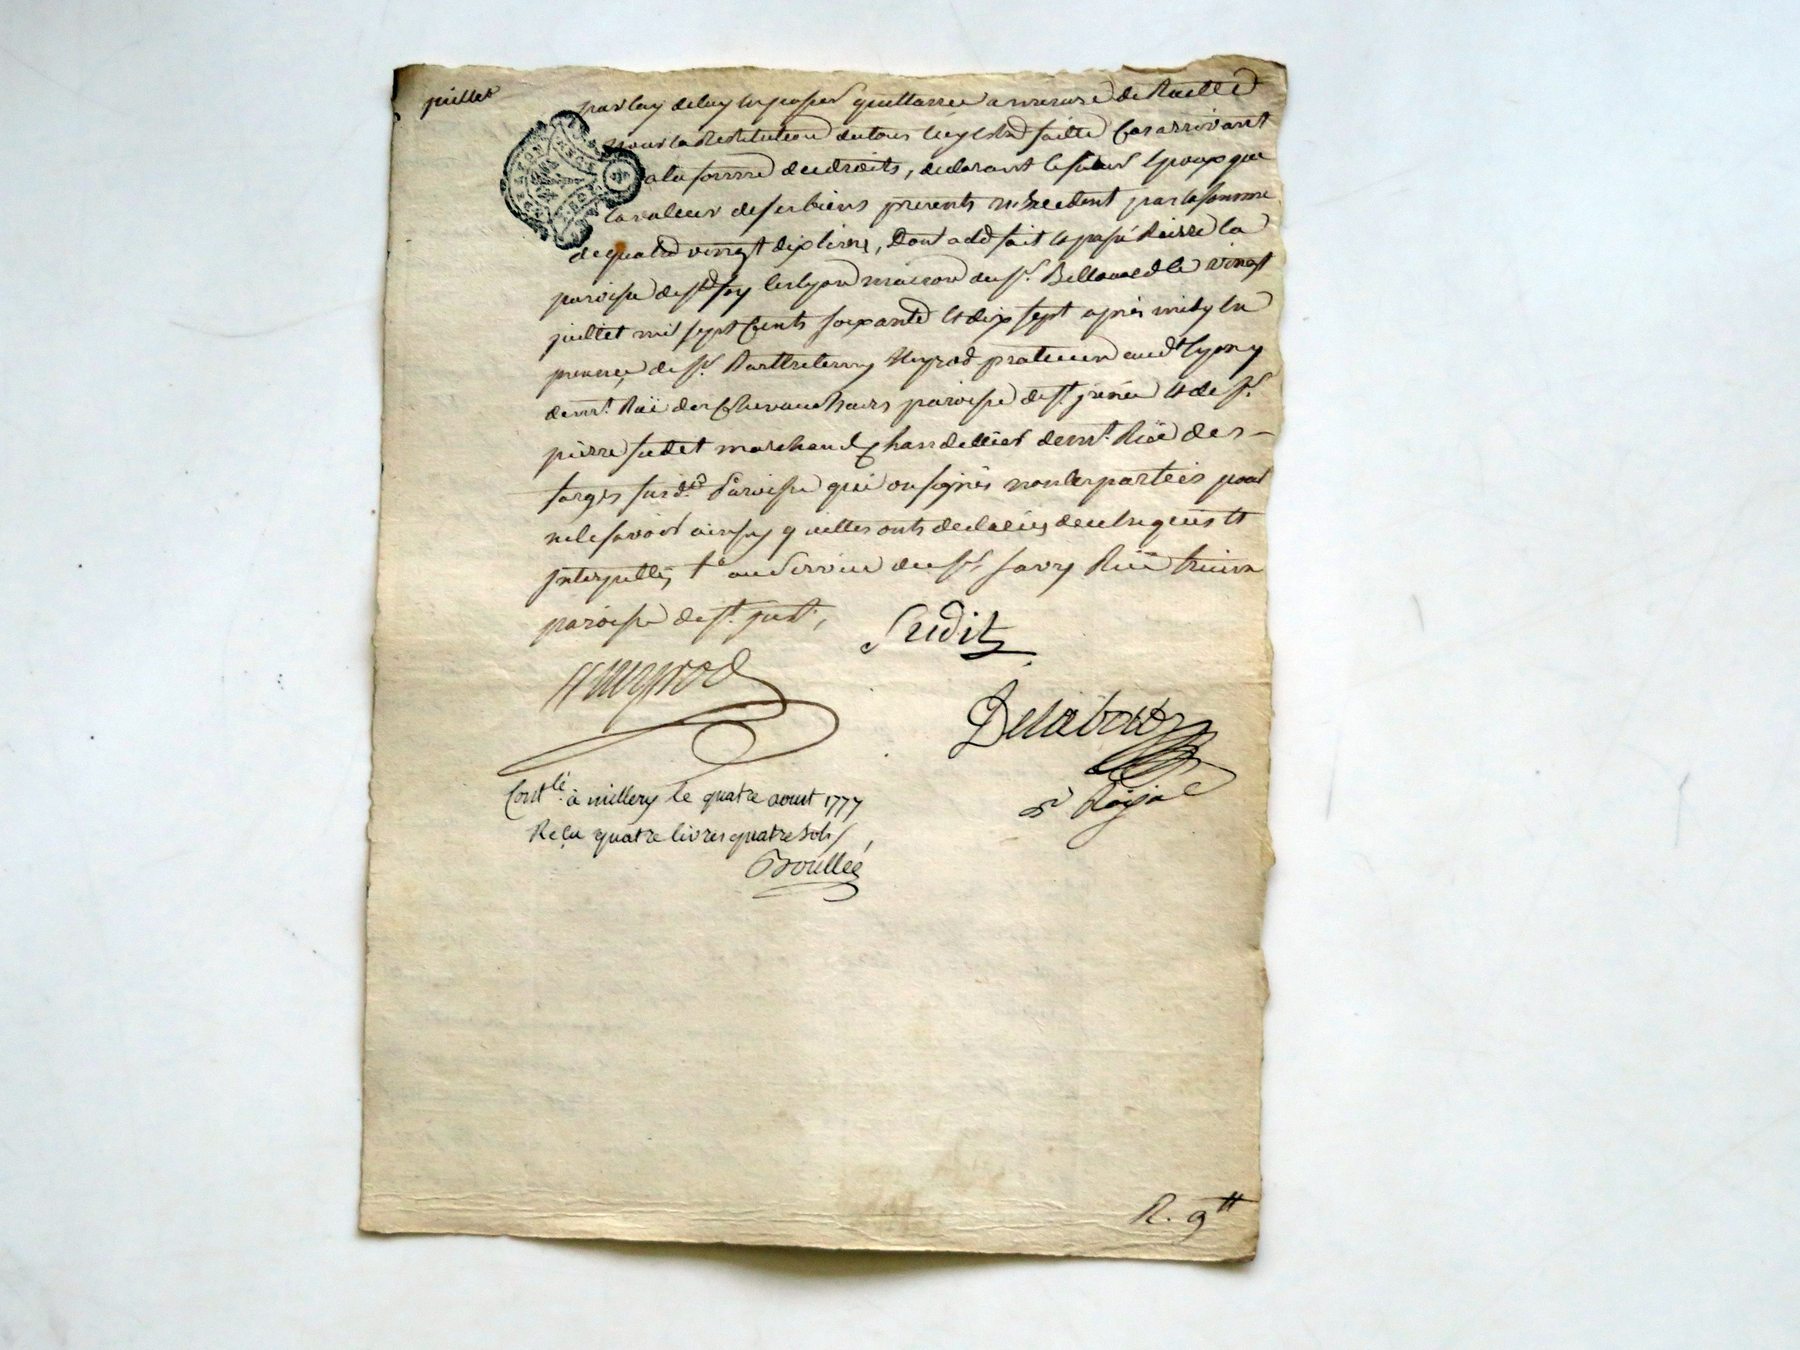 juillet
par luy de luy en passer quittance a mesure de Recette
pour la Restitution du tout luy estre faitte Cas arrivant
a la forme des droits, declarant le futur Epoux que
la valeur de ses biens presents n'Excedent pas la somme
de quatre vingt dix livres, Dont acte fait et passé Riere la
paroisse de ste foy les lyon maison du sr. le vingt
juillet mil sept Cents soixante et dix sept après midy en
presence de sr. Barthelemy Neyrod praticien aud. lyon y
demt. Rüe des Chevaucheurs paroisse de st. jrénée et de sr.
pierre sudit marchand Chandellier demt. Rüe des
farges susd. Paroisse qui on signés non les parties pour
ne le savoir ainsy qu'elles onts declarées de ce Enquis et
Interpellés, au Service du sr. savy Rüe
paroisse de st. just,
Sudit
Neyrod
Delaborde
nre Royal
Contlé. à millery le quatre aoust 1777
Reçu quatre livres quatre sols
Boullée
R. 9tt